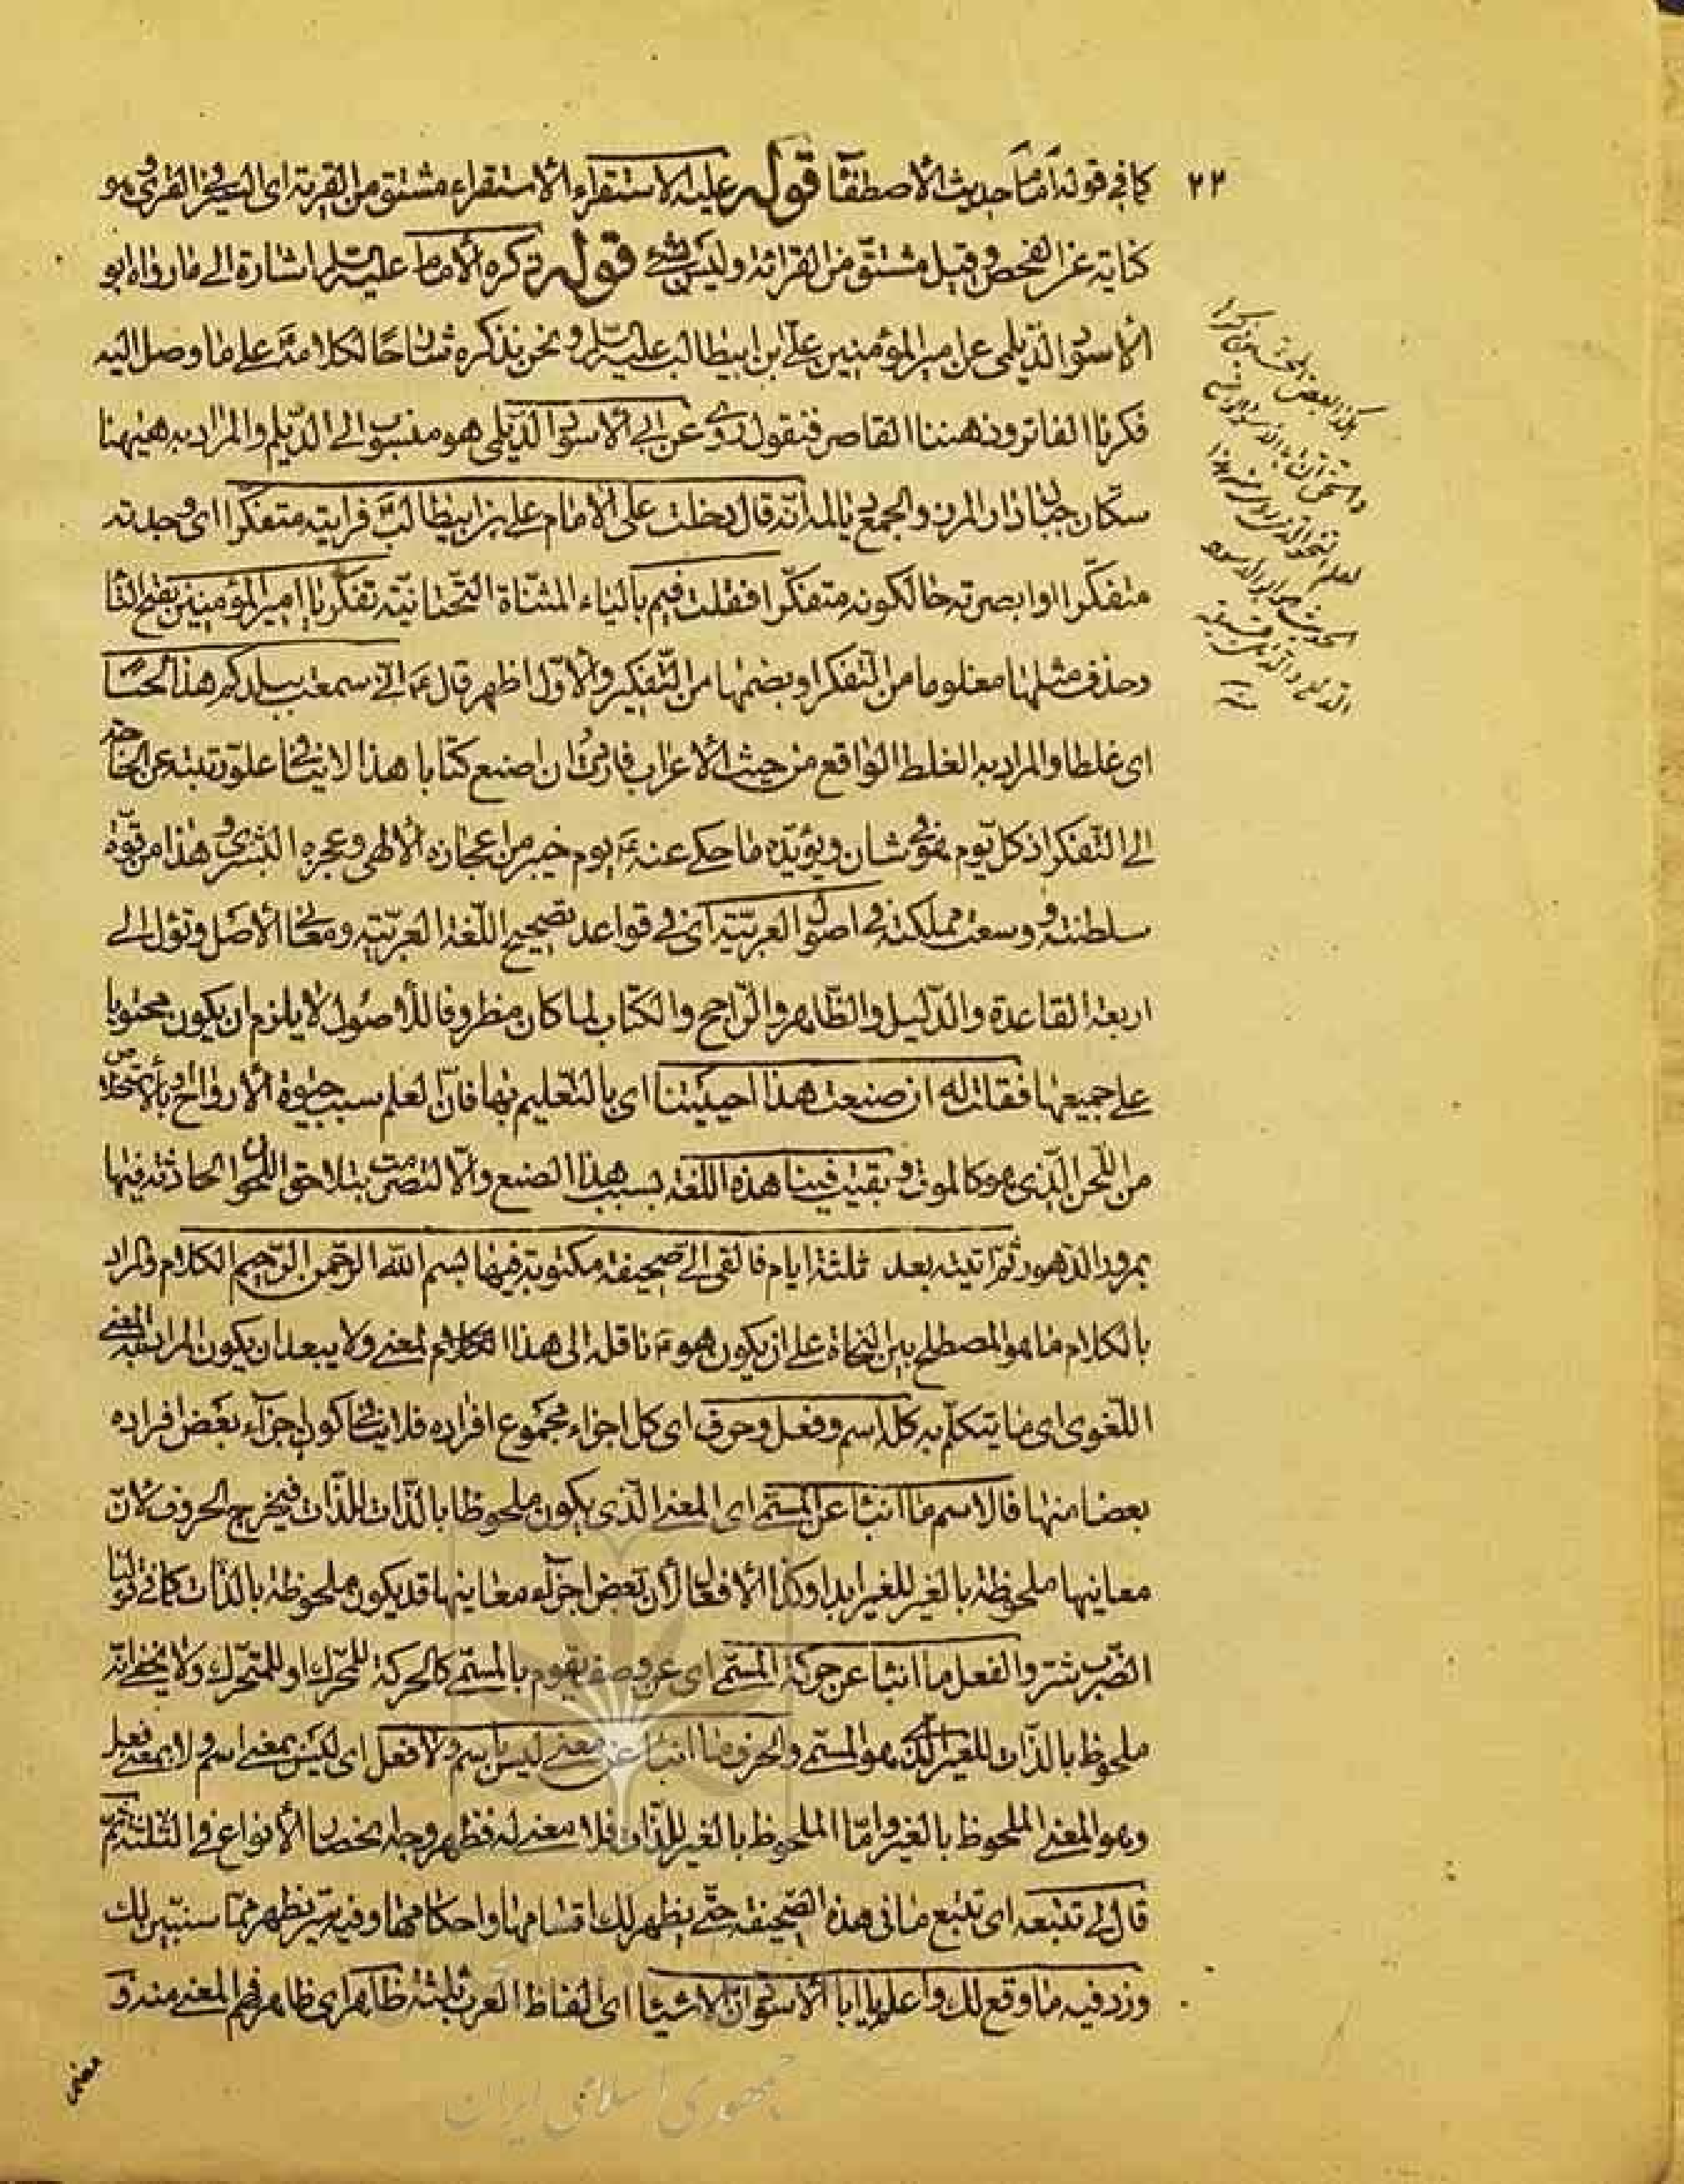 ۲۲
كما في قوله اما ما حديث الأصطفا قوله عليه الاستقراء الأستقراء مشتق من القرية اى السير في القرى هو
كناية عن الفحص وقيل مشتق من القرائة وليس بشئ قوله ذكره الأمام عليه السلم اشارة الى ما رواه ابو
الأسود الديلمى عن امير المؤمنين على ابن ابيطالب عليه السلم ونحن نذكره شارحا لكلامه على ما وصل اليه
فكرنا الفاتر وذهننا القاصر فنقول روى عن ابى الأسود الديلمى هو منسوب الى الديلم والمراد به هيهنا
سكان والجمع بالمد انه قال دخلت على الأمام على بن ابيطالب فرايته متفكرا اى وجدته
متفكرا او ابصرته حالكونه متفكرا فقلت فيم بالياء المثناة التحتانية تفكر يا امير المؤمنين بفتح التا
وحذف مثلها معلوما من التفكر او بضمها من التفكير والأول اظهر قال انى سمعت ببلدكم هذا لحنا
اى غلطا والمراد به الغلط الواقع من حيث الأعراب فاردت ان اصنع كتابا هذا لا ينافى علو رتبته عن الحاجة
الى التفكر اذ كل يوم هو فى شان ويؤيده ما حكى عنه يوم خيبر من اعجازه الألهى وعجزه البشرى وهذا من قوة
سلطنته وسعت مملكته فى اصول العربية اى فى قواعد تصحيح اللغة العربية ومعانى الأصل وتؤل الى
اربعة القاعدة والدليل والظاهر والراجح والكتاب لما كان مظروفا للأصول لا يلزم ان يكون محتويا
على جميعها فقلت له ان صنعت هذا احييتنا اى بالتعليم بها فان العلم سبب حيوة الأرواح
من اللحن الذى هو كالموت وبقيت فينا هذه اللغة بسبب هذا الصنع والا لتصرمت بتلاحق اللحون الحادثة فيها
بمرور الدهور ثم اتيته بعد ثلثة ايام فالقى الى صحيفة مكتوبة فيها بسم الله الرحمن الرحيم الكلام والمراد
بالكلام ما هو المصطلح بين النحاة على ان يكون هو ناقله الى هذا المعنى ولا يبعد ان يكون المراد به المعنى
اللغوى اى ما يتكلم به كله اسم وفعل وحرف اى كل اجزاء مجموع افراده فلا ينافى كون اجزاء بعض افراده
بعضا منها فالاسم ما انبا عن المسمى اى المعنى الذى يكون ملحوظا بالذات للذات فيخرج الحروف لان
معانيها ملحوظة بالغير للغير ابدا وكذا الأفعال لأن بعض اجزاء معانيها قد يكون ملحوظة بالذات كما فى قولنا
الضرب شر والفعل ما انبا عن حركة المسمى اى عن وصف يقوم بالمسمى كالحركة للمحرك او للمتحرك ولا يخفى انه
ملحوظ بالذات للغير الذى هو المسمى والحرف ما انبا عن معنى ليس باسم ولا فعل اى ليس بمعنى اسم ولا بمعنى فعل
وهو المعنى الملحوظ بالغير واما الملحوظ بالغير للذات فلا معنى له فظهر وجه انحصار الأنواع فى الثلثة ثم
قال لى تتبعه اى تتبع ما فى هذه الصحيفة حتى يظهر لك اقسامها واحكامها وفيه سر يظهر مما سنبين لك
وزد فيه ما وقع لك واعلم يا ابا الأسود ان الاشيا اى الفاظ العرب ثلثة ظاهر اى ظاهر فهم المعنى منه و